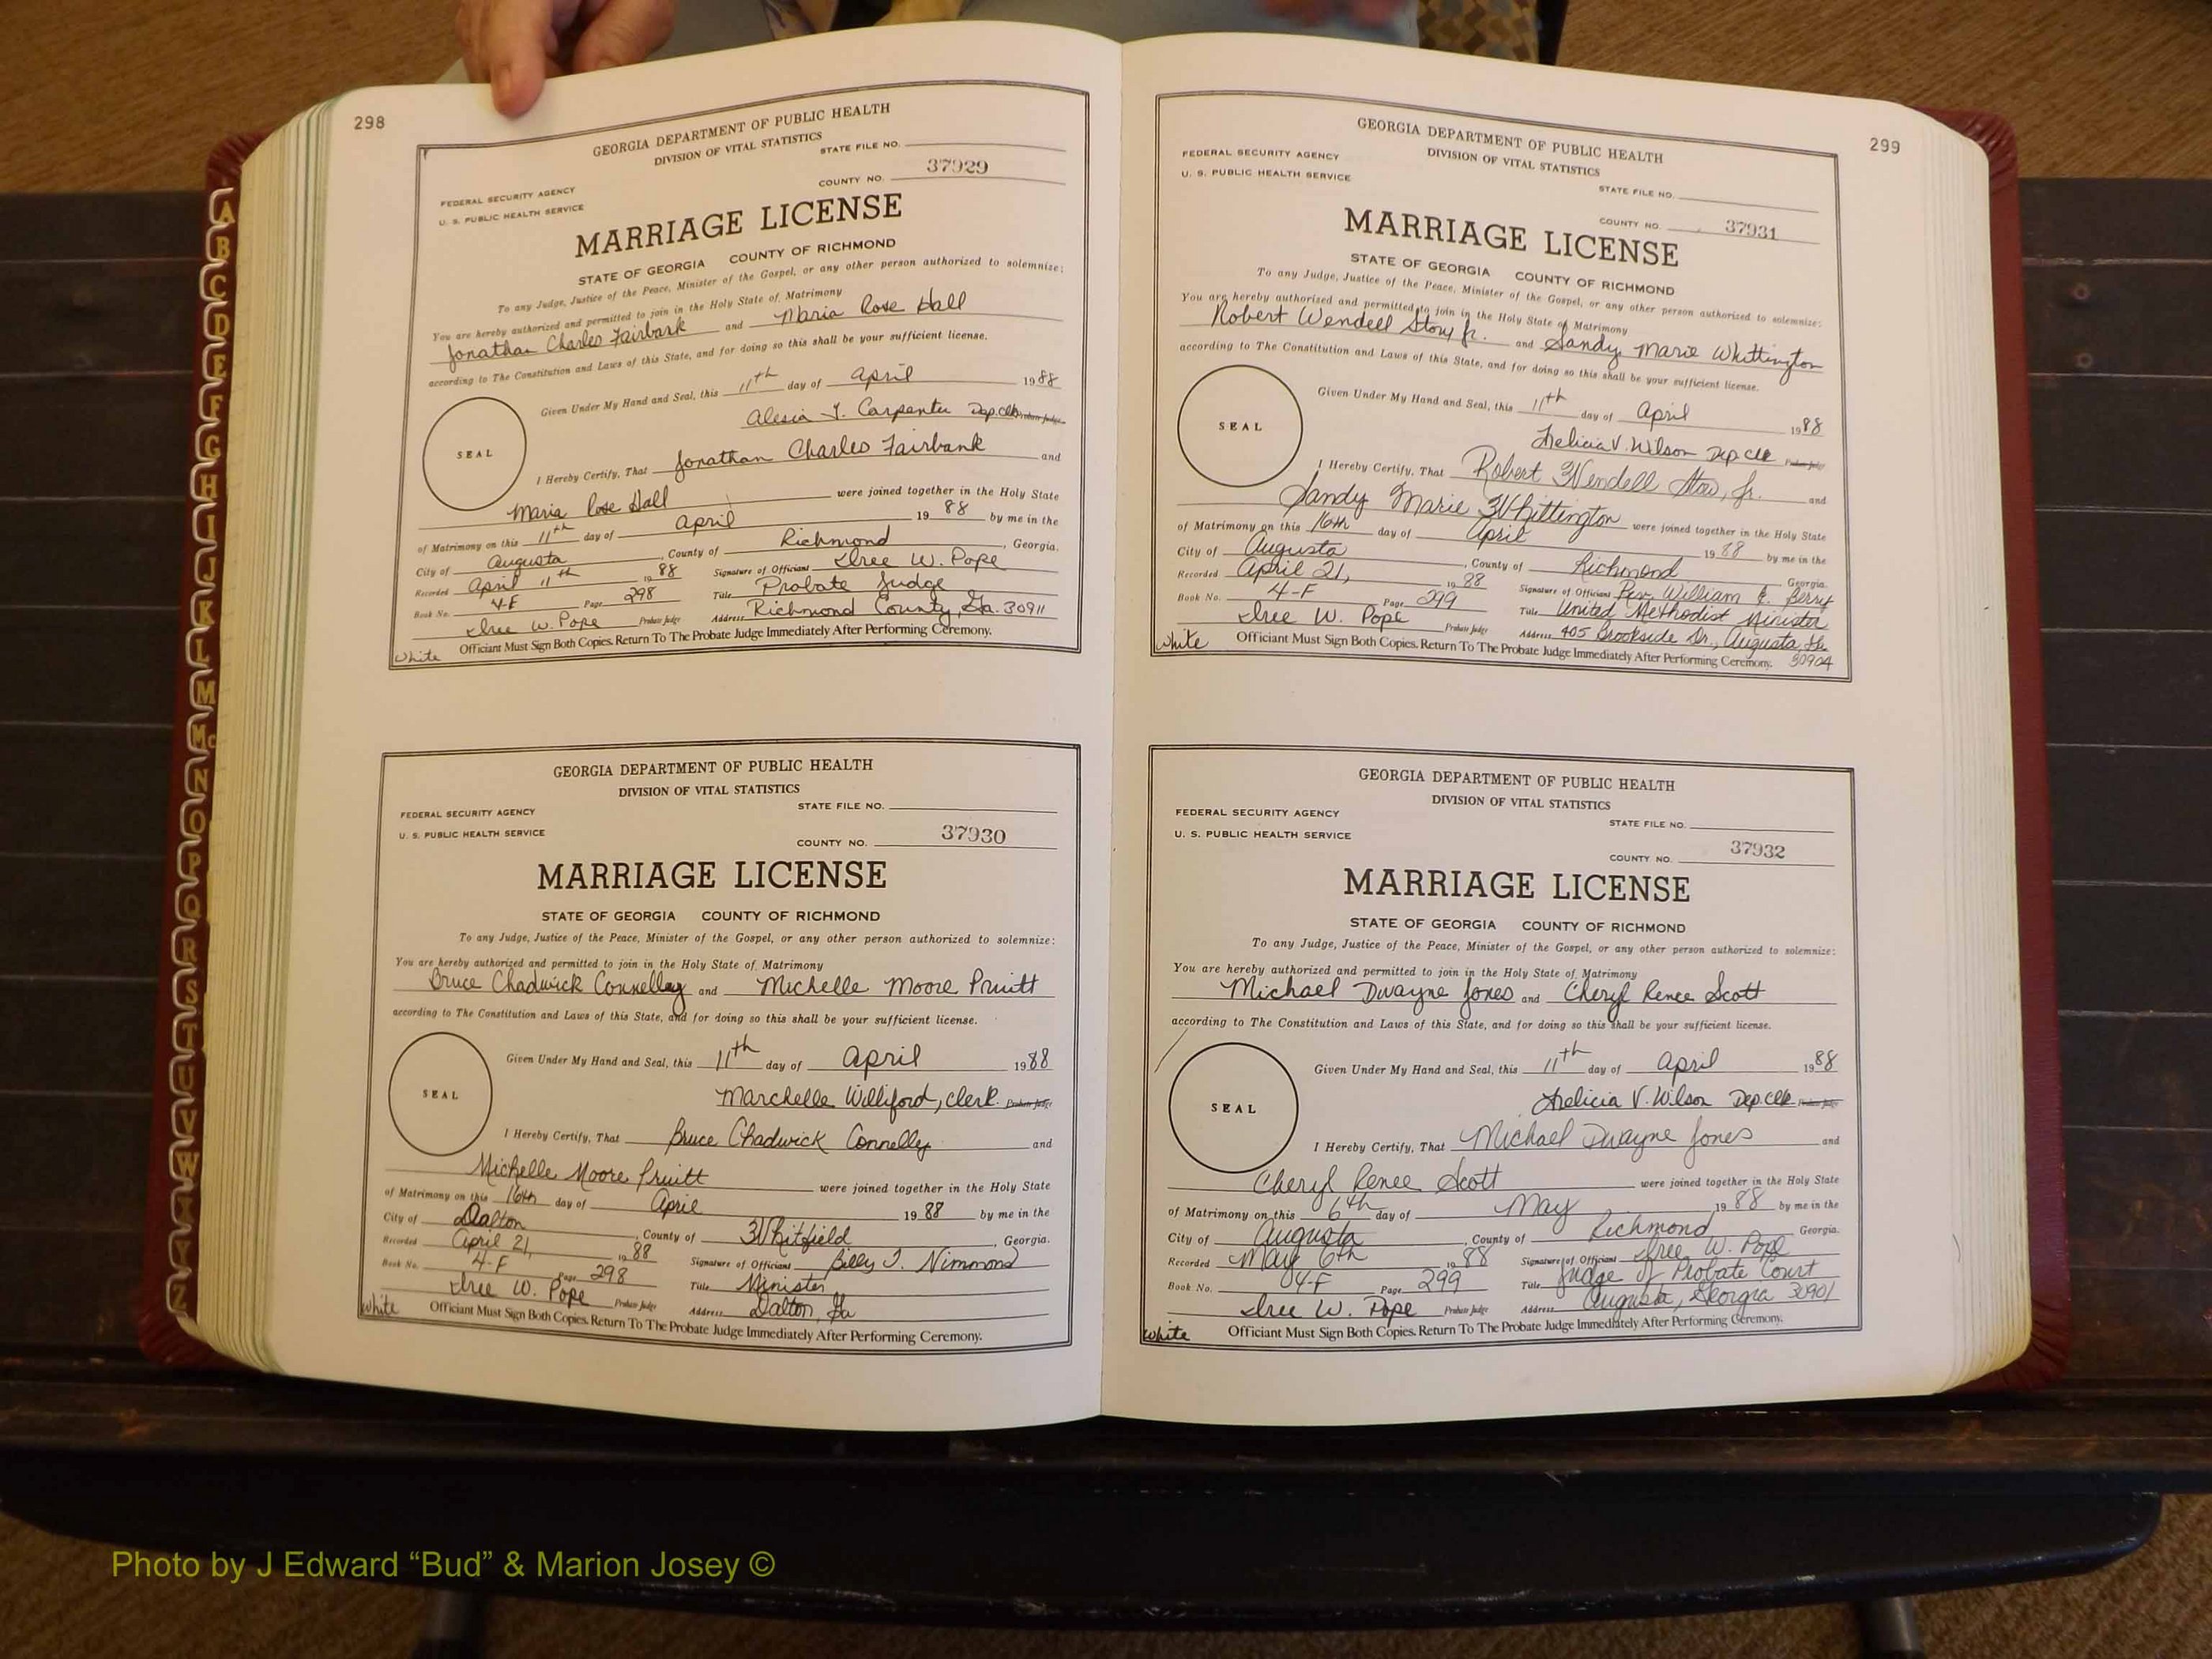 298
GEORGIA DEPARTMENT OF PUBLIC HEALTH
DIVISION OF VITAL STATISTICS
STATE FILE NO.
FEDERAL SECURITY AGENCY
U. S. PUBLIC HEALTH SERVICE
COUNTY NO. 37929
MARRIAGE LICENSE
STATE OF GEORGIA COUNTY OF RICHMOND
To any Judge, Justice of the Peace, Minister of the Gospel, or any other person authorized to solemnize:
You are hereby authorized and permitted to join in the Holy State of Matrimony
Jonathan Charles Fairbank and Maria Rose Hall
according to The Constitution and Laws of this State, and for doing so this shall be your sufficient license.
Given Under My Hand and Seal, this 11th day of April 1988
Alesia Y. Carpenter Dep.Clk. Probate Judge
SEAL
I Hereby Certify, That Jonathan Charles Fairbank and
Maria Rose Hall were joined together in the Holy State
of Matrimony on this 11th day of April 1988 by me in the
City of Augusta, County of Richmond, Georgia.
Recorded April 11th 1988 Signature of Officiant W. Pope
Book No. 4-F Page 298 Title Probate Judge
W. Pope Probate Judge Address Richmond County, Ga. 30911
White Officiant Must Sign Both Copies. Return To The Probate Judge Immediately After Performing Ceremony.
GEORGIA DEPARTMENT OF PUBLIC HEALTH
DIVISION OF VITAL STATISTICS
FEDERAL SECURITY AGENCY
STATE FILE NO.
U. S. PUBLIC HEALTH SERVICE
COUNTY NO. 37930
MARRIAGE LICENSE
STATE OF GEORGIA COUNTY OF RICHMOND
To any Judge, Justice of the Peace, Minister of the Gospel, or any other person authorized to solemnize:
You are hereby authorized and permitted to join in the Holy State of Matrimony
Bruce Chadwick Connelley and Michelle Moore Pruitt
according to The Constitution and Laws of this State, and for doing so this shall be your sufficient license.
Given Under My Hand and Seal, this 11th day of April 1988
Marchelle Williford, Clerk. Probate Judge
SEAL
I Hereby Certify, That Bruce Chadwick Connelly and
Michelle Moore Pruitt were joined together in the Holy State
of Matrimony on this 16th day of April 1988 by me in the
City of Dalton, County of Whitfield, Georgia.
Recorded April 21, 1988 Signature of Officiant Billy J. Nimmons
Book No. 4-F Page 298 Title Minister
W. Pope Probate Judge Address Dalton, Ga
White Officiant Must Sign Both Copies. Return To The Probate Judge Immediately After Performing Ceremony.
299
GEORGIA DEPARTMENT OF PUBLIC HEALTH
FEDERAL SECURITY AGENCY
DIVISION OF VITAL STATISTICS
U. S. PUBLIC HEALTH SERVICE
STATE FILE NO.
COUNTY NO. 37931
MARRIAGE LICENSE
STATE OF GEORGIA COUNTY OF RICHMOND
To any Judge, Justice of the Peace, Minister of the Gospel, or any other person authorized to solemnize:
You are hereby authorized and permitted to join in the Holy State of Matrimony
Robert Wendell Story Jr. and Sandy Marie Whittington
according to The Constitution and Laws of this State, and for doing so this shall be your sufficient license.
Given Under My Hand and Seal, this 11th day of April 1988
Felicia V. Wilson Dep Clk Probate Judge
SEAL
I Hereby Certify, That Robert Wendell Jr. and
Sandy Marie Whittington were joined together in the Holy State
of Matrimony on this 16th day of April 1988 by me in the
City of Augusta, County of Richmond Georgia.
Recorded April 21, 1988 Signature of Officiant Rev. William E. Berry
Book No. 4-F Page 299 Title United Methodist Minister
W. Pope Probate Judge Address 405 Brookside Dr., Augusta, Ga. 30904
White Officiant Must Sign Both Copies. Return To The Probate Judge Immediately After Performing Ceremony.
GEORGIA DEPARTMENT OF PUBLIC HEALTH
DIVISION OF VITAL STATISTICS
FEDERAL SECURITY AGENCY
STATE FILE NO.
U. S. PUBLIC HEALTH SERVICE
COUNTY NO. 37932
MARRIAGE LICENSE
STATE OF GEORGIA COUNTY OF RICHMOND
To any Judge, Justice of the Peace, Minister of the Gospel, or any other person authorized to solemnize:
You are hereby authorized and permitted to join in the Holy State of Matrimony
Michael Dwayne Jones and Cheryl Renee Scott
according to The Constitution and Laws of this State, and for doing so this shall be your sufficient license.
Given Under My Hand and Seal, this 11th day of April 1988
Felicia V. Wilson Dep.Clk Probate Judge
SEAL
I Hereby Certify, That Michael Dwayne Jones and
Cheryl Renee Scott were joined together in the Holy State
of Matrimony on this 6th day of May 1988 by me in the
City of Augusta, County of Richmond Georgia.
Recorded May 6th 1988 Signature of Officiant W. Pope
Book No. 4-F Page 299 Title Judge of Probate Court
W. Pope Probate Judge Address Augusta, Georgia 30901
White Officiant Must Sign Both Copies. Return To The Probate Judge Immediately After Performing Ceremony.
A
B
C
D
E
F
G
H
I
J
K
L
M
Mc
N
O
P
Q
R
S
T
U
V
W
X
Y
Z
Photo by J Edward “Bud” & Marion Josey ©